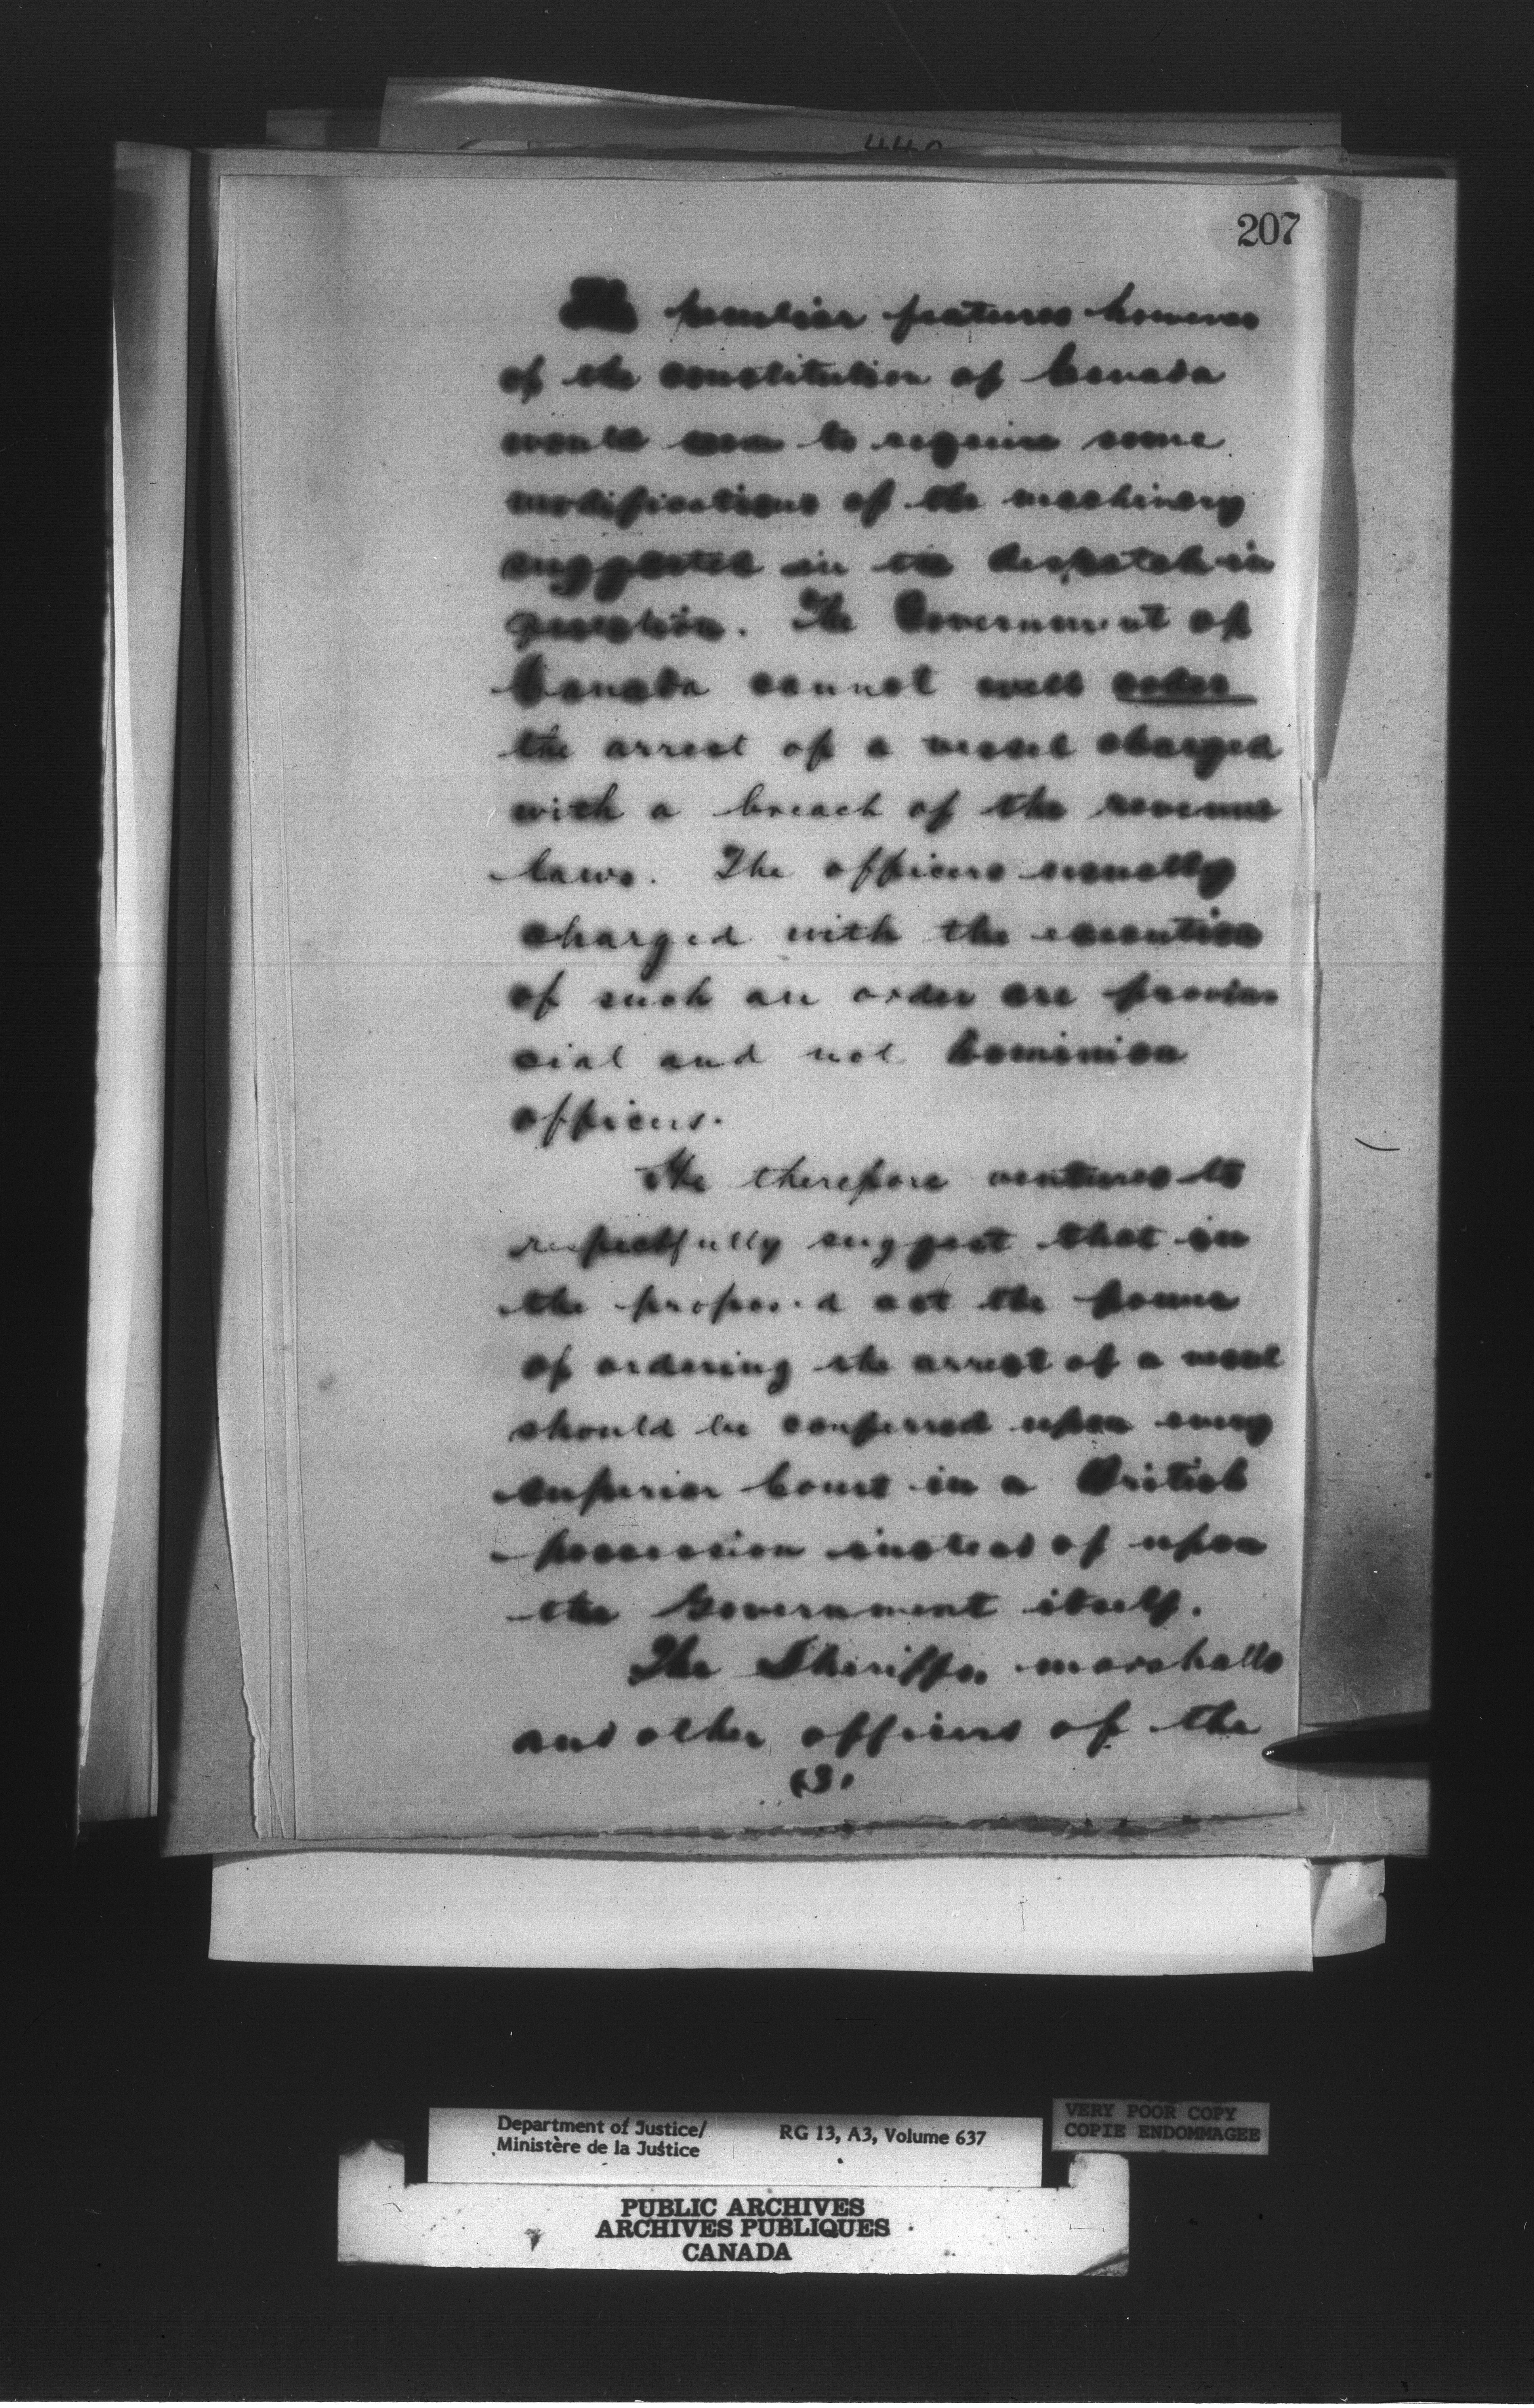 207
The peculiar features however
of the constitution of Canada
would seem to require some
modifications of the machinery
suggested in the despatch in
question. The Government of
Canada cannot well order
the arrest of a vessel charged
with a breach of the revenue
laws. The officers usually
charged with the execution
of such an order are provin
cial and not Dominion
officers.
He therefore ventures to
respectfully suggest that in
the proposed act the power
of ordering the arrest of a vessel
should be conferred upon every
superior Court in a British
possession instead of upon
the Government itself.
The Sheriffs, marshalls
and other officers of the
(3.
Department of Justice/ RG 13, A3, Volume 637
Ministère de la Justice
VERY POOR COPY
COPIE ENDOMMAGEE
PUBLIC ARCHIVES
ARCHIVES PUBLIQUES
CANADA